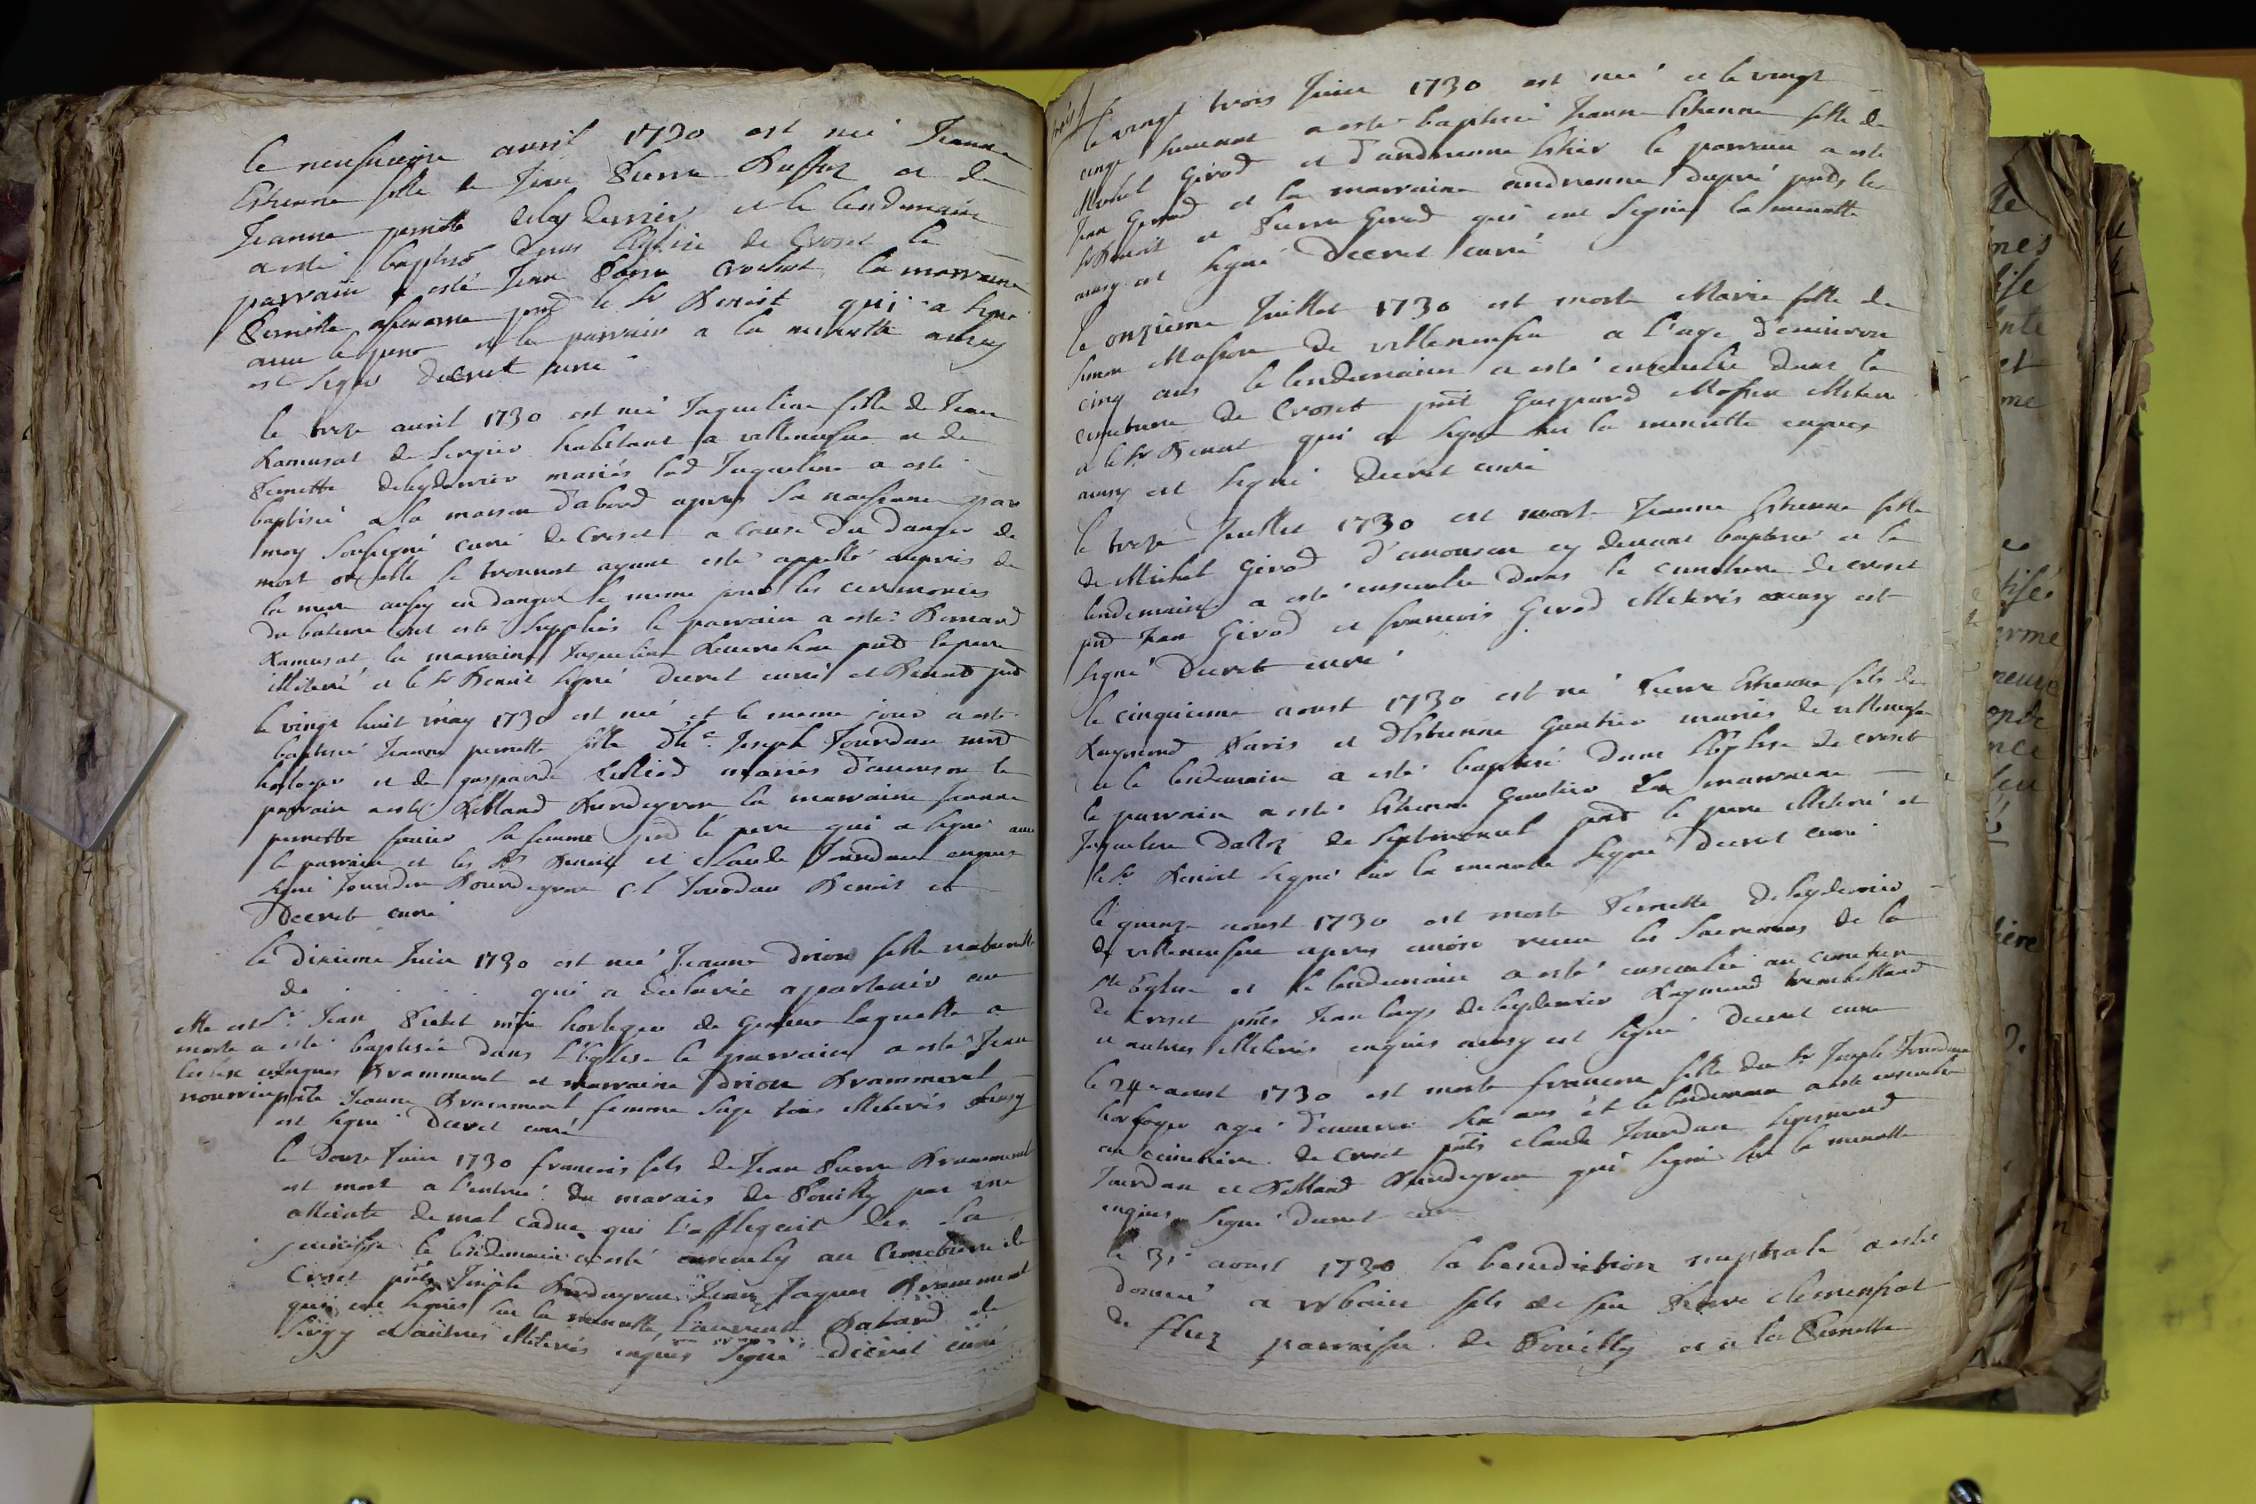 le neufvieme avril 1730 est née Jeanne
Estienne fille de Jean Pierre Buffuz et de
Jeanne pernette Deleyderrier et le lendemain
a esté baptisé dans l'Eglise de Croset le
parrain a esté Jean Pierre Crochat la marraine
Pernette presnt le Sr Benoit qui a signé
avec le pere et le parrain a la minutte ainsy
est signé Decret curé
le treze avril 1730 est née Jaqueline fille de Jean
Ramusat de Sergier habitant a villeneufve et de
Pernette Deleyderrier mariés lad Jaqueline a esté
baptisée a la maison d'abord apres sa naissance par
moy soussigné curé de Croset a cause du danger de
mort ou elle se trouvoit ayant esté appellé aupres de
la mere aussy en danger le meme jour les ceremonies
du bateme ont esté supplées le parrain a esté Bernard
Ramusat la marraine Jaqueline pnt le pere
illiteré et le Sr Benoit signé Decret curé et Benoit pnt
le vingt huit may 1730 est née et le meme jour a esté
baptisée Jeanne pernette fille d'h.e Joseph Jourdan md
horloger et de gasparde mariés d'avouson le
parrain a esté Rolland Burdeyron la marraine Jeanne
pernette sa femme pnt le pere qui a signé avec
le parrain et les Srs Benoit et Claude Jourdan enquis
signé Jourdan Bourdeyron Cl Jourdan Benoit et
Decret curé
le dixieme Juin 1730 est née Jeanne Drion fille naturelle
de . . . . . qui a declarée apartenir au
Sr Jean Pictet mtre horloger de Geneve laquelle a
elle est
morte a
en
nourrice
esté baptisée dans l'Eglise le parrain a esté Jean
Jaques Brammerel et marraine Drion Brammerel
pnte Jeanne Brammerel femme sage tous illiterés ainsy
est signé Decret curé
le Doze Juin 1730 francois fils de Jean Pierre Brammerel
est mort a l'entrée du marais de Pouilly par une
atteinte de mal caduc qui l'affligeoit des sa
jeunesse le lendemain a esté ensevely au Cimetiere de
Croset pnts Joseph Burdeyron Jean Jaques Brammerel
qui ont signés sur la minutte, Laurent Babard de
Sergy et autres illiterés enquis signé Decret curé
le vingt trois Juin 1730 est née et le vingt
cinq suivant a esté baptisée Jeanne Estienne fille de
Michel Girod et d'andrienne le parrain a esté
Jean Girod et la marraine andrienne dupré pnts le
Sr Benoit et Pierre Girod qui ont signés la minutte
ainsy est signé Decret curé
le onzieme Juillet 1730 est morte Marie fille de
Simon Masson de villeneufve a l'age d'environ
cinq ans le lendemain a esté ensevelie dans le
cimetiere de Croset pnt Gaspard Masson illiteré
et le Sr Benoit qui a signé sur la minutte enquis
ainsy est signé Decret curé
le treze Juillet 1730 est morte Jeanne Estienne fille
de Michel Girod d'avouson cy devant baptisée et le
lendemain a esté ensevelie dans le cimetiere de croset
pnt Jean Girod et francois Girod illiterés ainsy est
signé Decret curé
le cinquieme aoust 1730 est né Pierre Estienne fils de
Raymond Paris et d'Estienne Gautier mariés de villeneufve
et le lendemain a esté baptisé dans l'Eglise de croset
le parrain a esté Estienne Gautier La marraine
Jaqueline Dalloz de Septmoncel pnt le pere illiteré et
le Sr Benoit signé sur la minutte signé Decret curé
le quinze aoust 1730 est morte Pernette Deleyderrier
de villeneufve apres avoir receu les Sacremens de la
Ste Eglise et le lendemain a esté ensevelie au cimetiere
de Croset pnts Jean louys deleyderrier Raymond
et autres illiterés enquis ainsy est signé Decret curé
le 24e aoust 1730 est morte francoise fille du Sr Joseph Jourdan
horloger agée d'environ six ans et le lendemain a esté ensevelie
au cimetiere de Croset pnts Claude Jourdan Sigismond
Jourdan et Rolland Burdeyron qui signé sur la minutte
enquis signé Decret curé
le 31 aoust 1730 la benediction nuptiale a esté
donnée a urbain fils de feu Pierre Clemensot
de fliez parroisse de Pouilly et a la Pernette